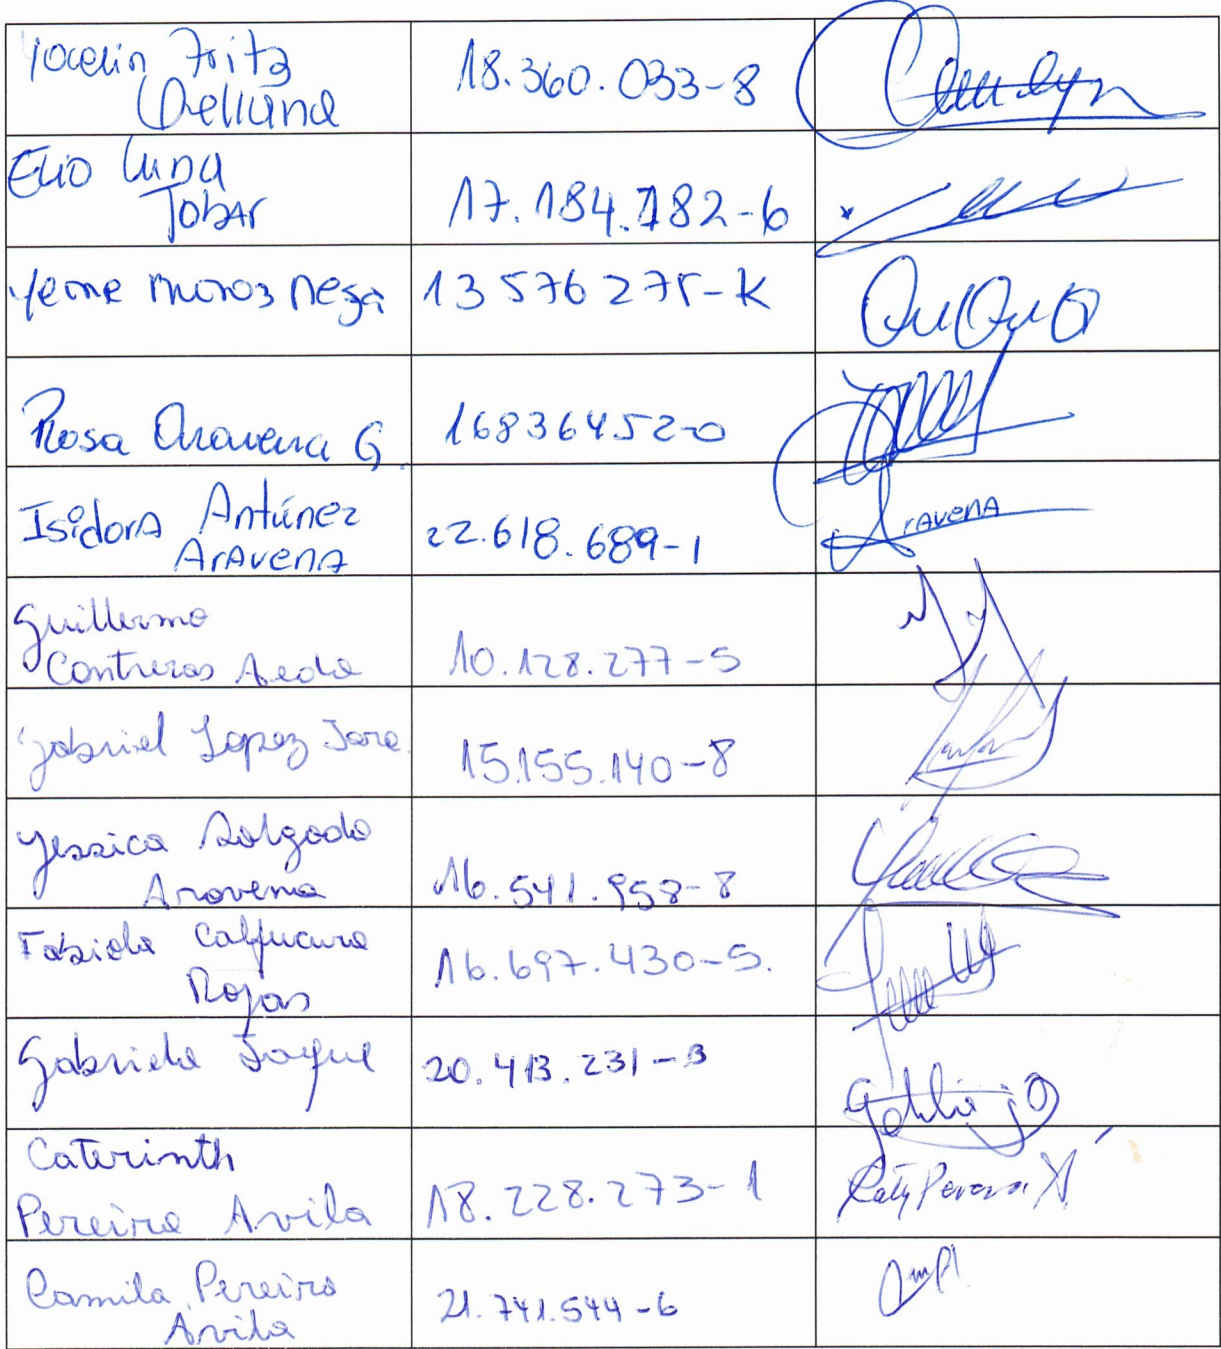 Yocelin Fritz
Orellana
18.360.033-8
Elio Luna
Tobar
17.184.782-6
Yerne Munoz Mesa
13 576 275-K
Rosa Aravena G.
16836452-0
Isidora Antúnez
Aravena
22.618.689-1
Aravena
Guillermo
Contreras Aedo
10.128.277-5
Gabriel Lopez Jara
15.155.140-8
Yessica Salgado
Aravena
16.541.958-8
Fabiola Calfucura
Rojas
16.697.430-5.
Gabriela
20.413.231-3
Caterinth
Pereira Avila
18.228.273-1
Katy Pereira
Camila Pereira
Avila
21.741.544-6